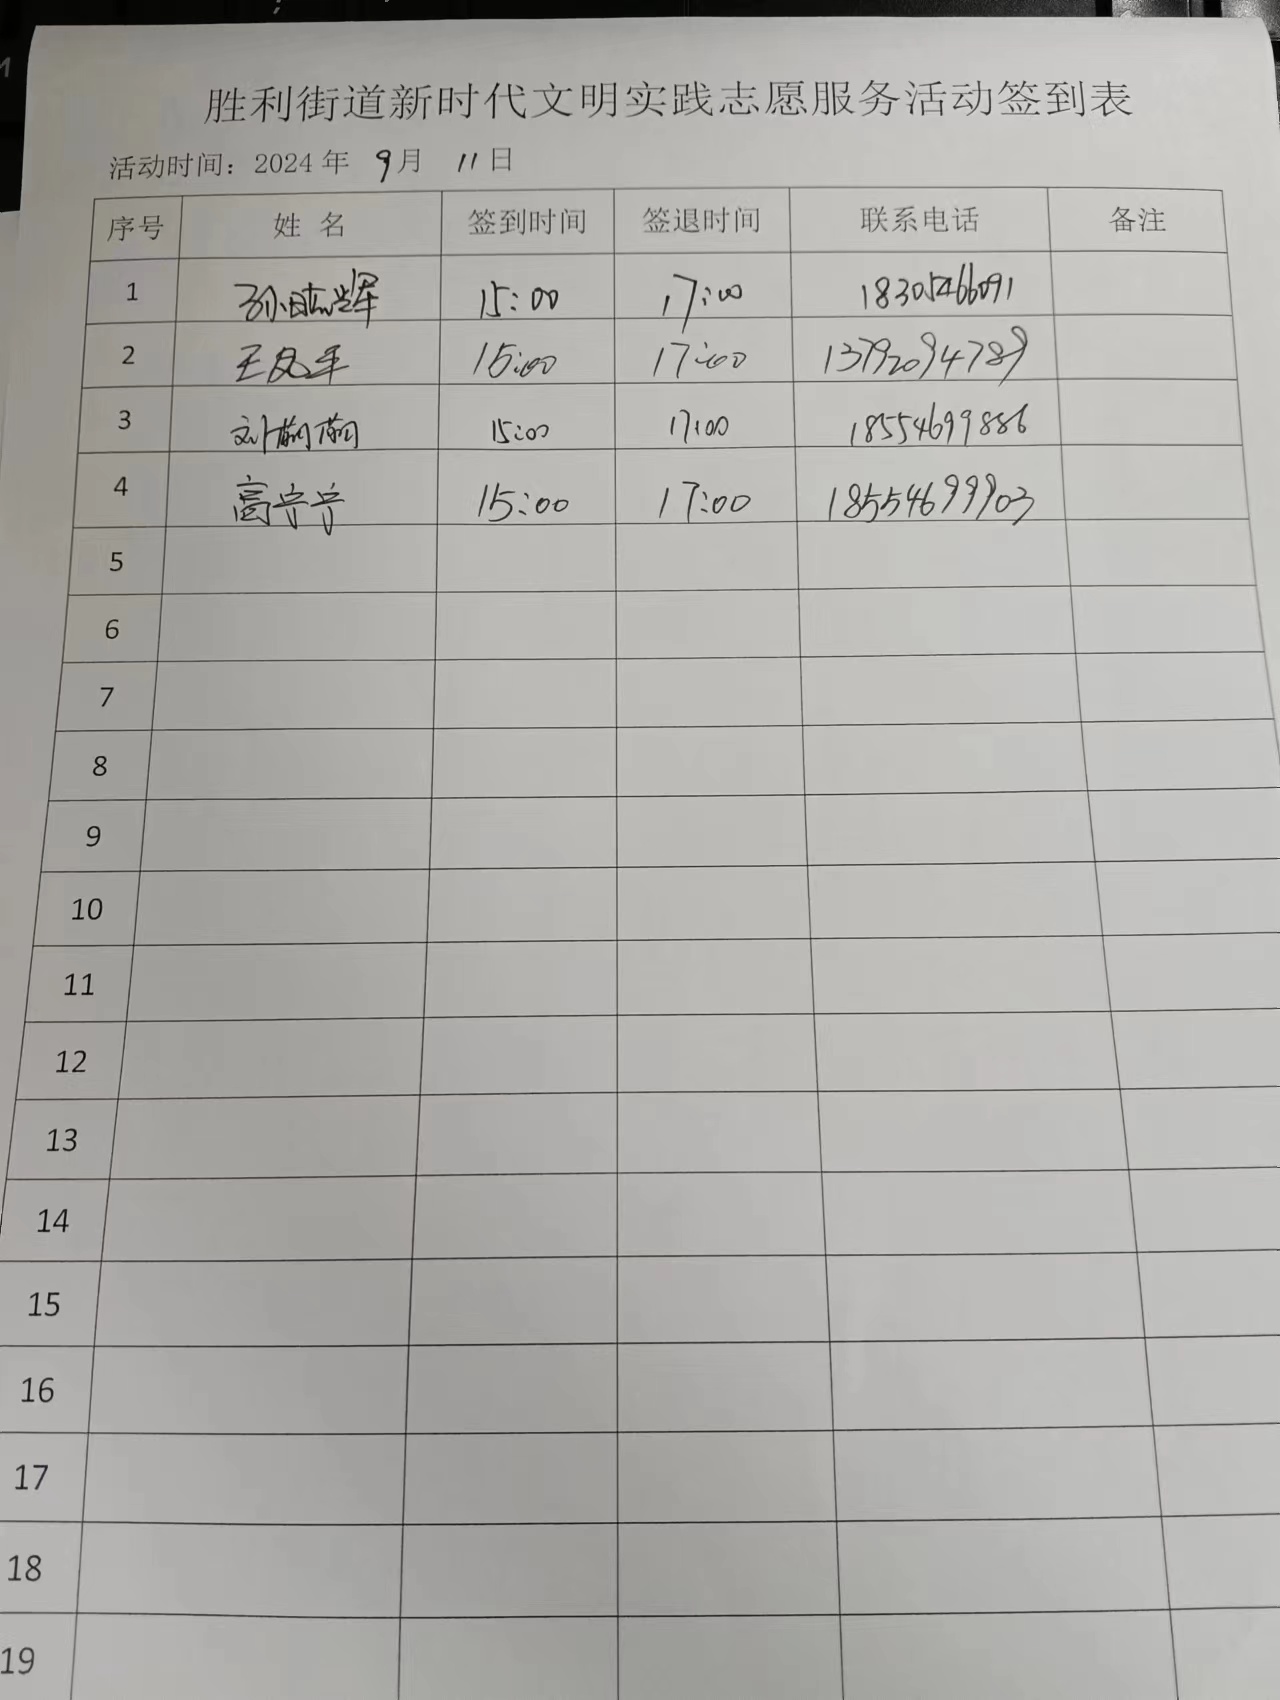 胜利街道新时代文明实践志愿服务活动签到表
活动时间：2024 年 9月 11日
序号 姓 名 签到时间 签退时间 联系电话 备注
1 15:00 17:00 18305466091
2 15:00 17:00 13792094789
3 刘萌萌 15:00 17:00 18554699886
4 高宁宁 15:00 17:00 18554699903
5
6
7
8
9
10
11
12
13
14
15
16
17
18
19